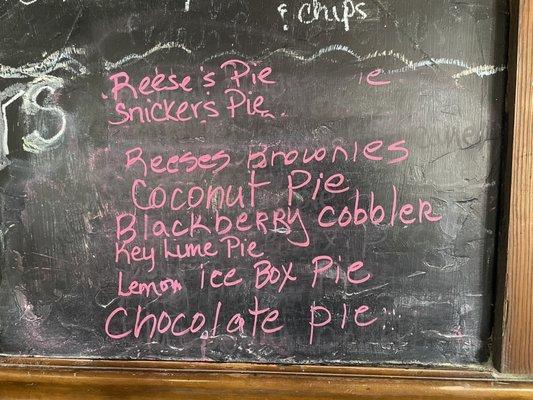 & chips
Reese's Pie
Snickers Pie
Reeses Brownies
Coconut Pie
Blackberry Cobbler
Key Lime Pie
Lemon ice Box Pie
Chocolate pie